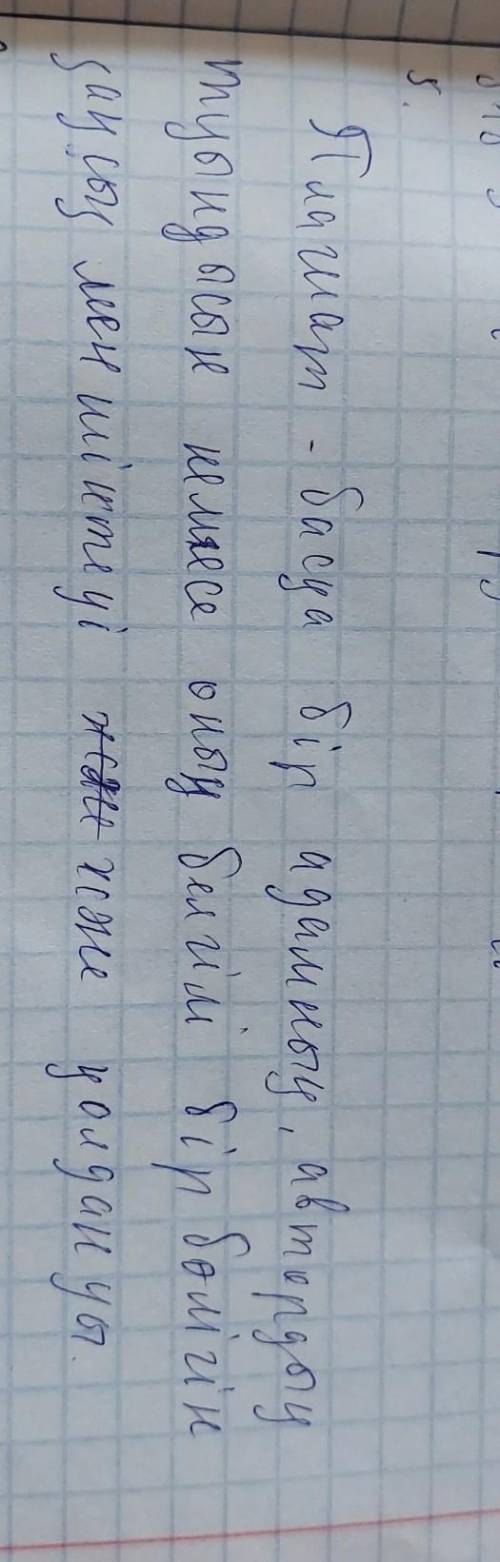 5.
Плагиат - басқа бір адамның, автордың
туындысын немесе оның белгілі бір бөлігін
заңсыз меншіктеуі және қолдануы.